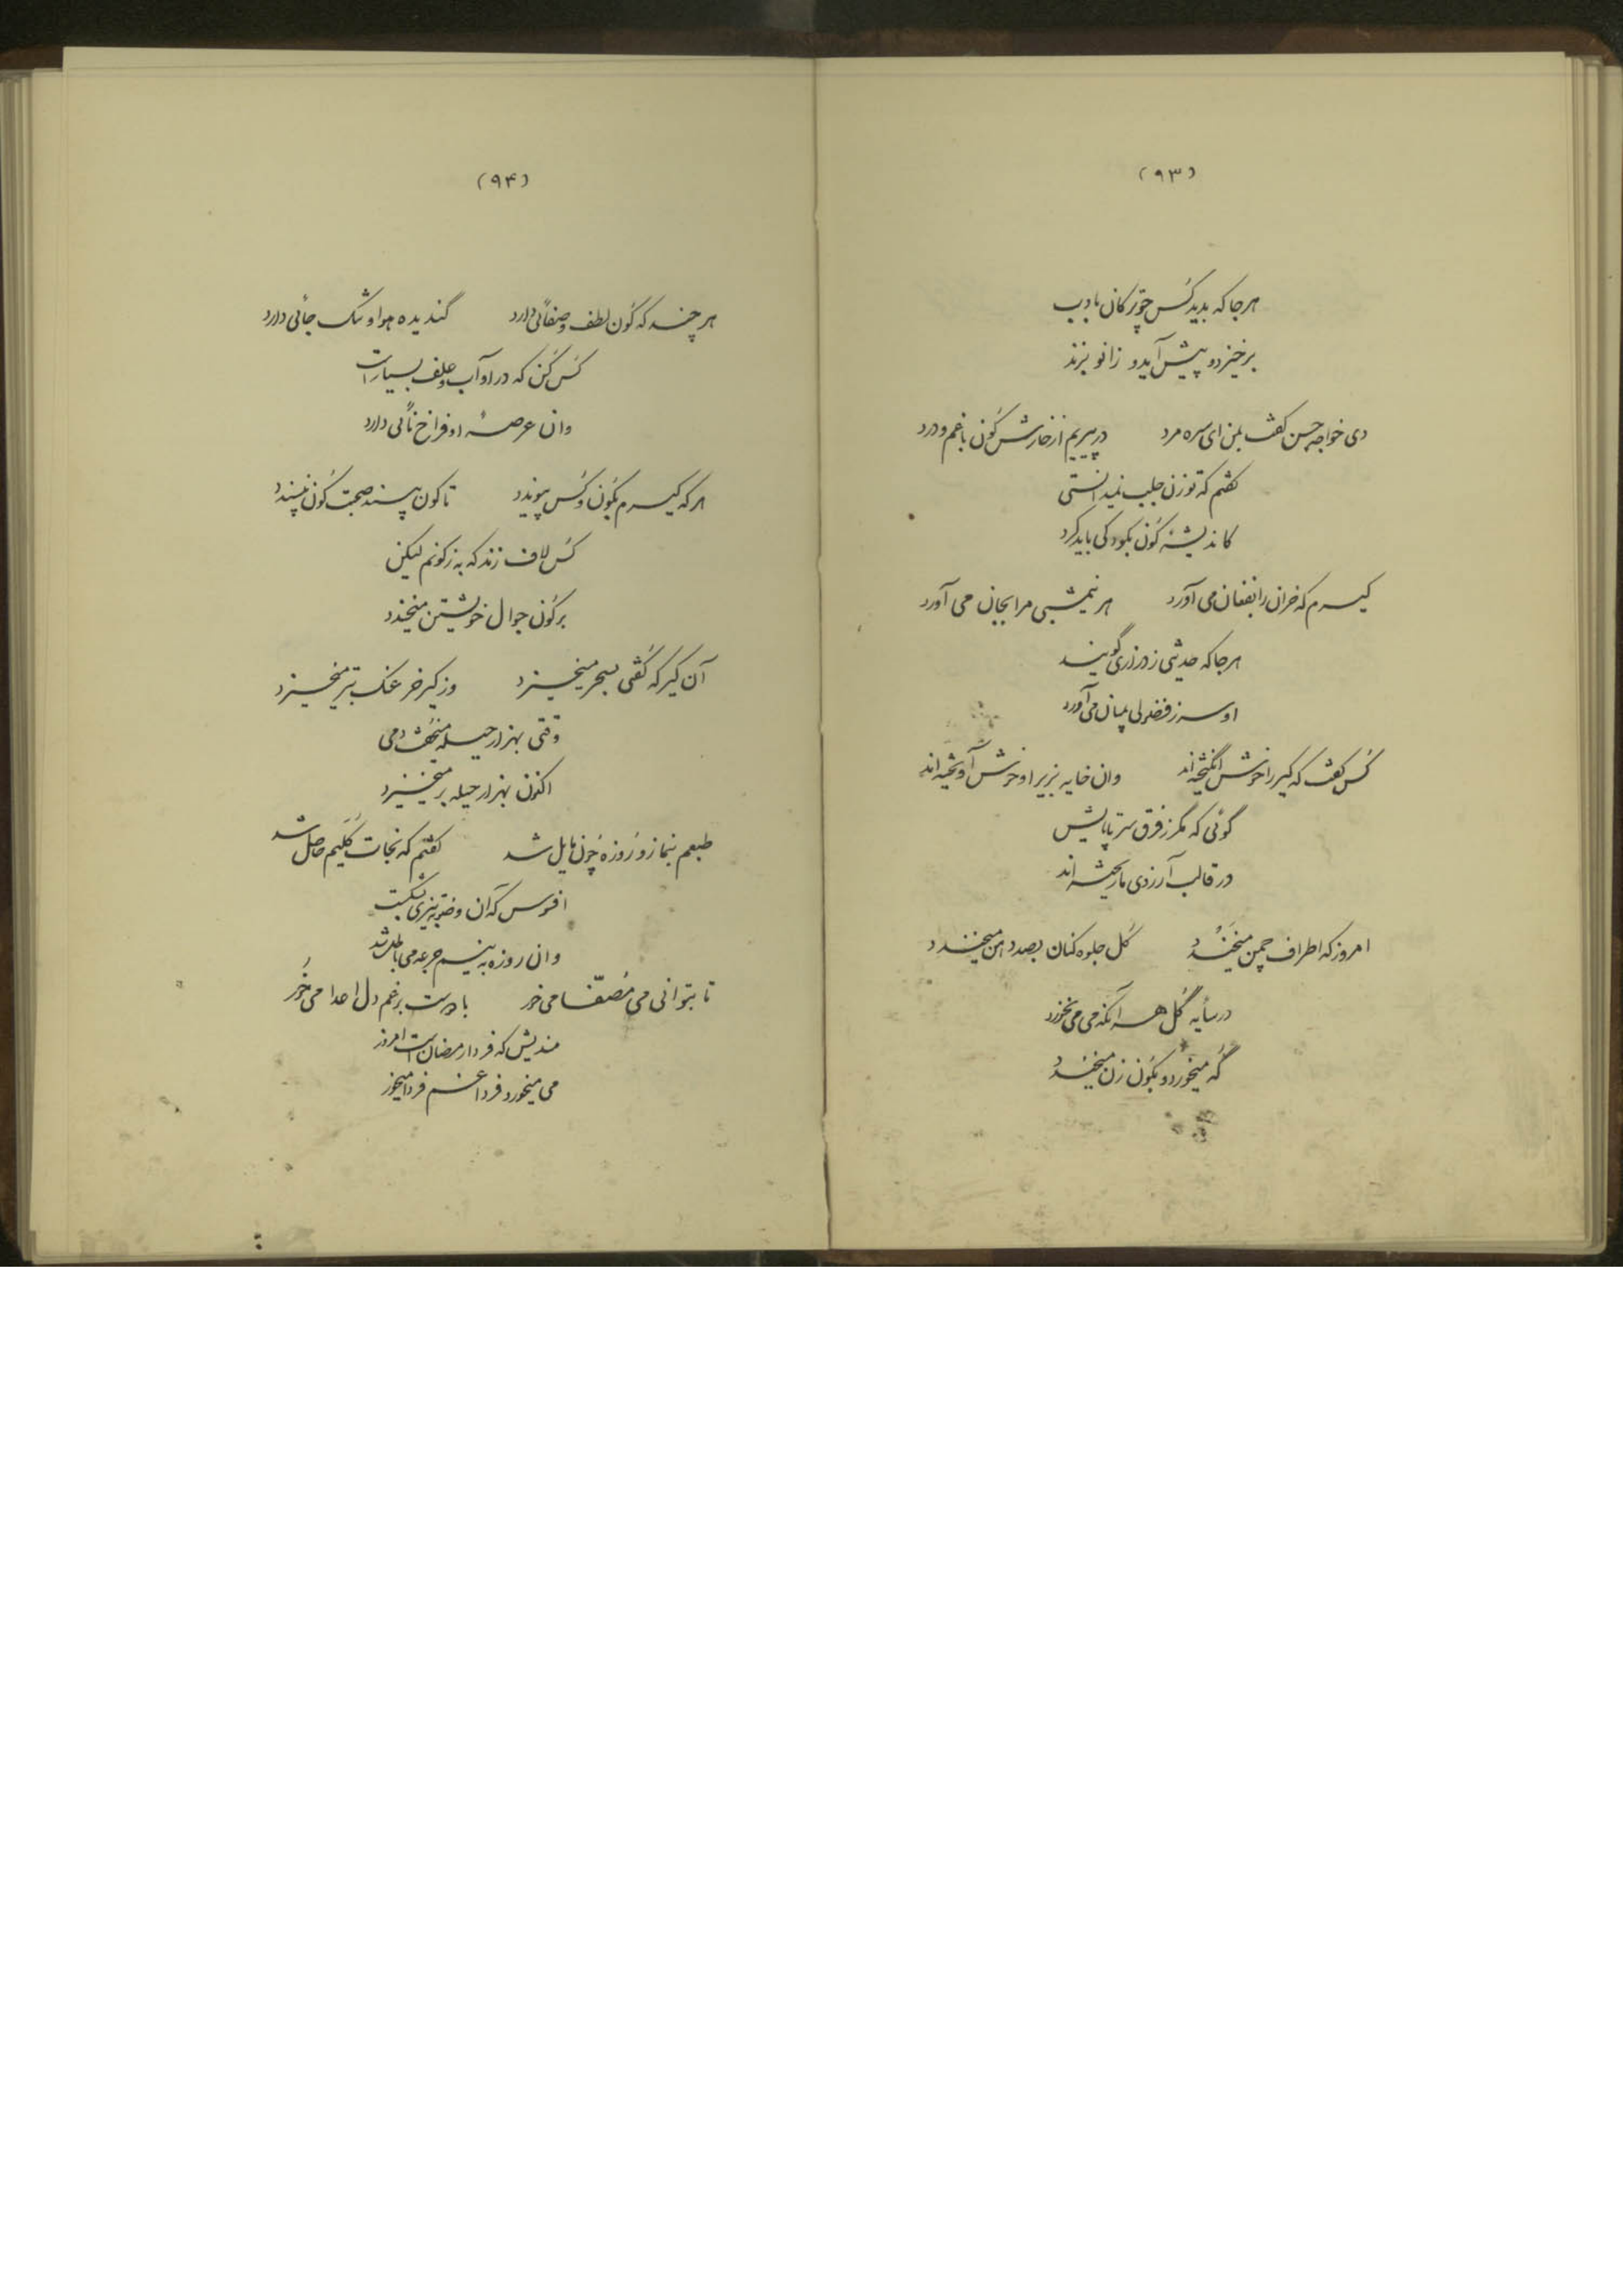 (۹۳)
هرجا که بدید کس چو ترکان بادب
برخیزد و پیش آید و زانو بزند
دی خواجه حسن گفت بمن ای سره مرد در پیریم از خارش کون با غم و درد
گفتم که تو زن جلب نمیدانستی
کاندیشهٔ کون بکودکی باید کرد
کیرم که خران را بفغان می آورد هر نیمشبی مرا بجان می آورد
هرجا که حدیثی ز درازی گویند
او سر ز فضولی بمیان می آورد
کس گفت که کیر را خوش انگیخته اند وان خایه بزیر او خوش آویخته اند
گوئی که مگر ز فرق سر تا پایش
در قالب آرزوی ما ریخته اند
امروز که اطراف چمن میخندد گل جلوه کنان بصد دهن میخندد
در سایه گل هر آنکه می می نخورد
گه میخورد و بکون زن میخندد
(۹۴)
هر چند که کون لطف و صفائی دارد گندیده هوا و تنک جائی دارد
کس کن که در او آب و علف بسیار است
وان عرصهٔ او فراخنائی دارد
هر که کیرم بکون و کس پیوندد تا کون بیند صحبت کون نپسندد
کس لاف زند که به ز کونم لیکن
بر کون جوال خویشتن میخندد
آن کیر که گفتی بسحر میخیزد وز کیر خر عنک بتر میخیزد
وقتی بهزار حیله میخفت دمی
اکنون بهزار حیله بر میخیزد
طبعم بنماز و روزه چون مایل شد گفتم که نجات کلیم حاصل شد
افسوس که آن وضو به تیزی بشکست
وان روزه به نیم جرعه می باطل شد
تا بتوانی می مصفا میخور با دوست برغم دل اعدا می خور
مندیش که فردا رمضان است امروز
می میخور و فردا غم فردا میخور